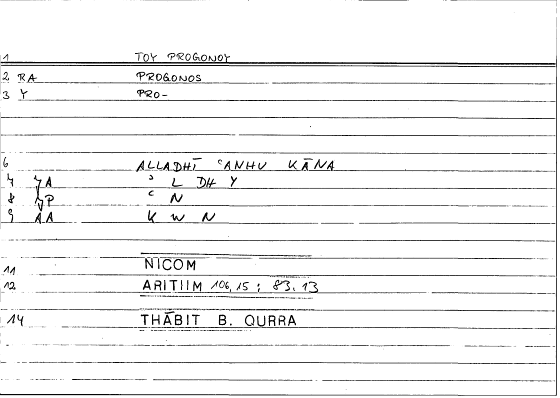 1 TOY PROGONOY
2 RA PROGONOS
3 Y PRO-
6 ALLADHĪ ʿANHU KĀNA
7 YA ʾ L DH Y
8 YP ʿ N
9 AA K W N
11 NICOM
12 ARITIIM 106,15 ; 83.13
14 THĀBIT B. QURRA